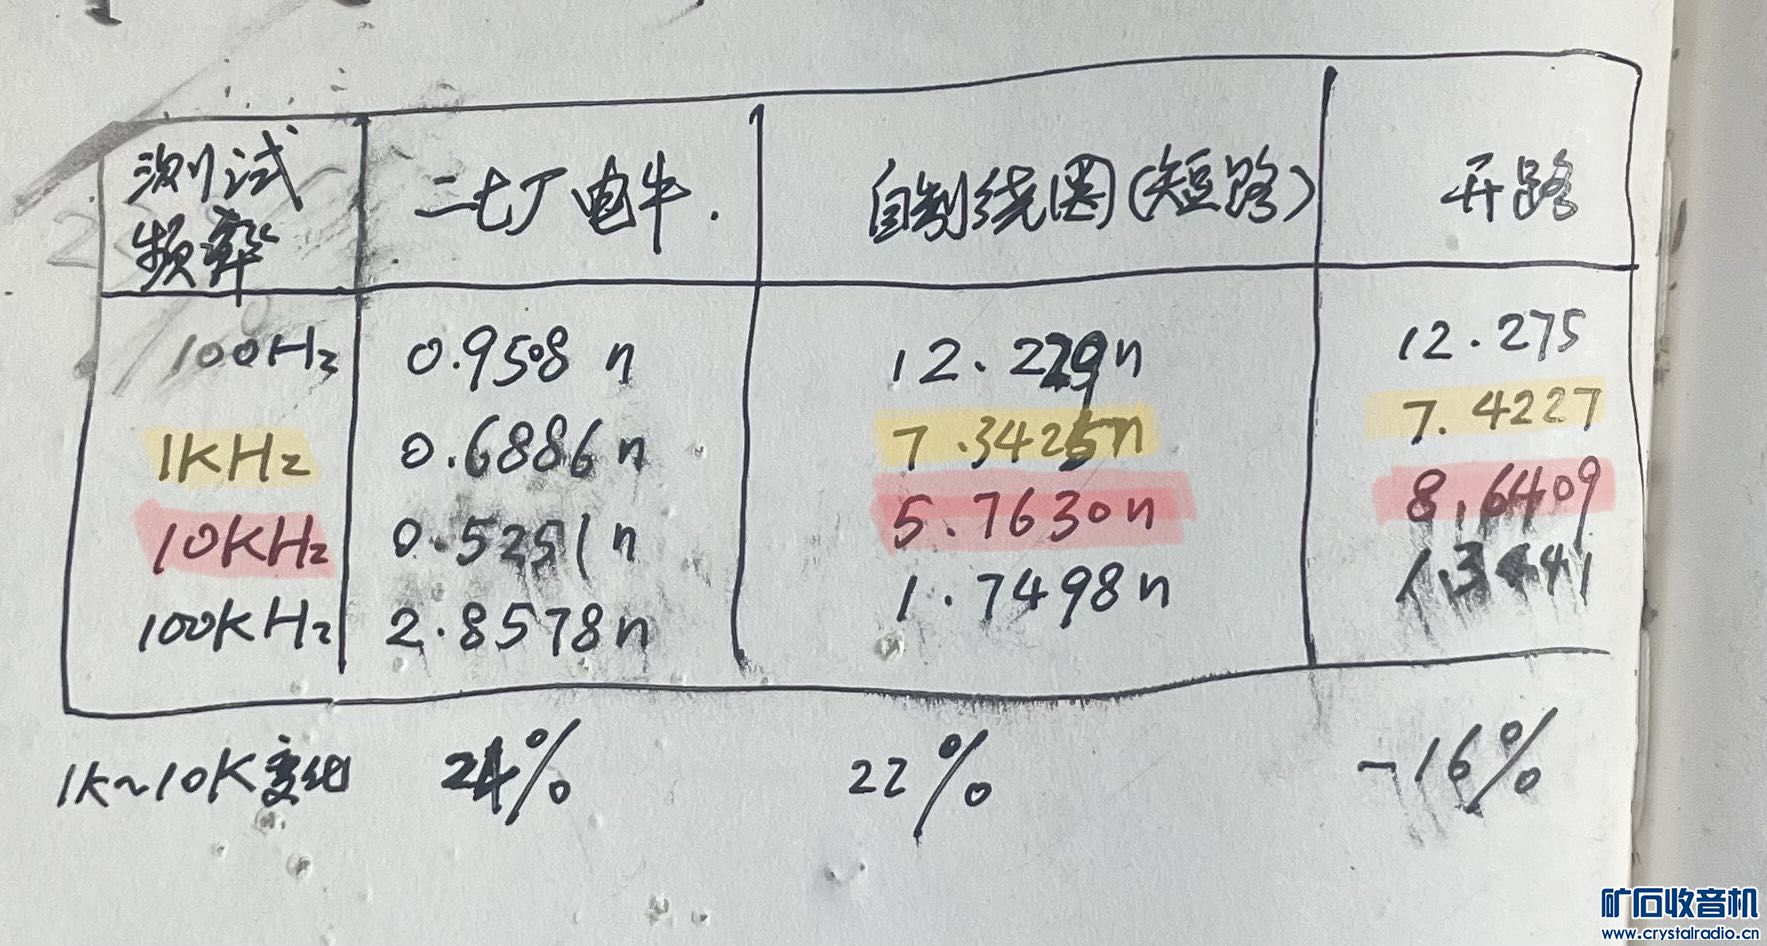 测试频率 二七厂电牛. 自制线圈(短路) 开路
100Hz 0.9508 n 12.229n 12.275
1KHz 0.6886n 7.3425n 7.4227
10KHz 0.5251n 5.7630n 8.6409
100KHz 2.8578n 1.7498n
1K~10K变化 24% 22% -16%
矿石收音机
www.crystalradio.cn